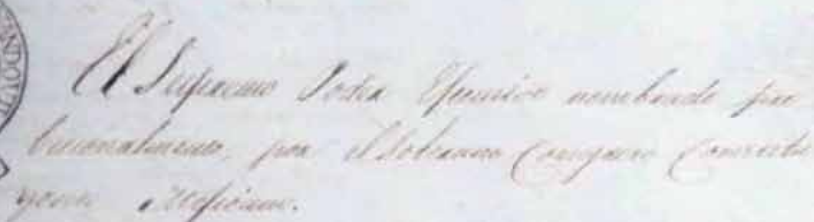 El Supremo Poder Ejecutivo nombrado pro
bicionalmente, por el Soberano Congreso Constitu
yente Mexicano.